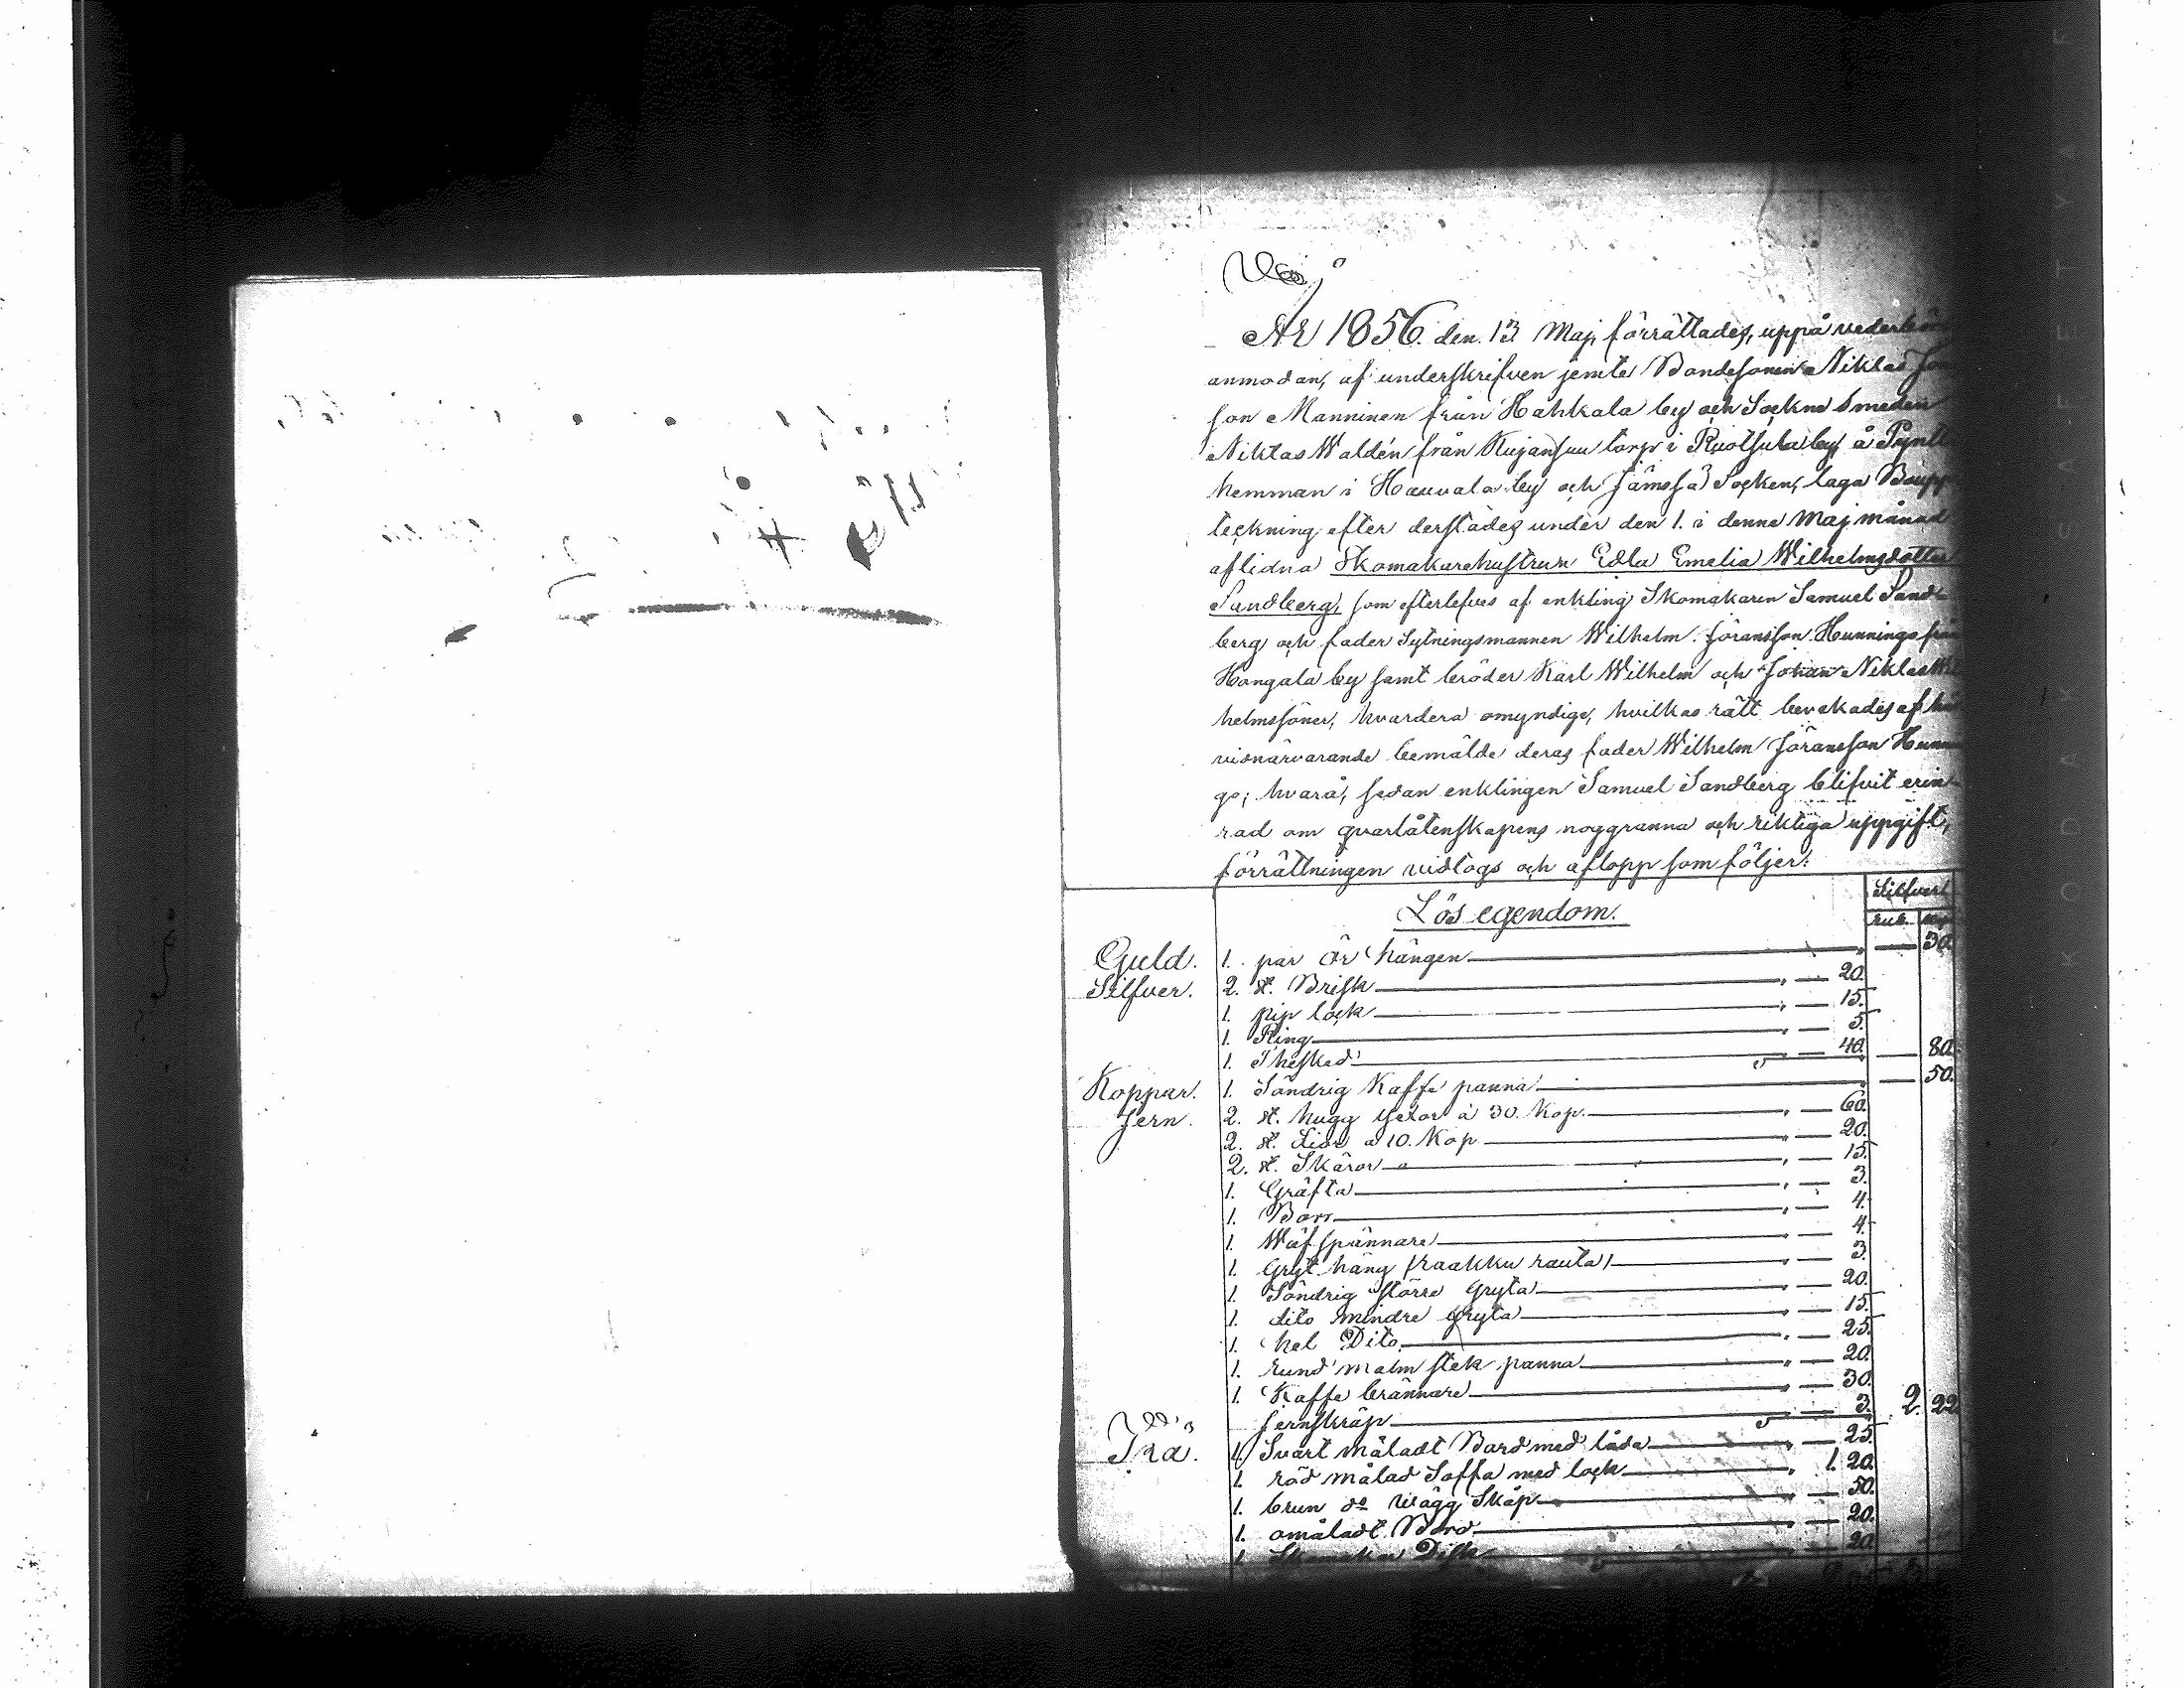 År 1856. den. 13 Maj, förrättades, uppå
anmodan, af underskrifven jemte Bondesonen Niklas
son Manninen från Hahkala by och Sockne Smeden
Niklas Waldén från Kujansuu torp i Ruotsula by, å
hemman i Hauvala by och Jämsä Socken, laga
teckning efter derstädes under den 1. i denne Maj månad
aflidna Skomakarehustrun Edla Emelia Wilhelmsdotter
Sandberg, som efterlefves af enkling Skomakaren Samuel Sand-
berg och fader Sytningsmannen Wilhelm Jöransson Hunninge från
Hongala by samt bröder Karl Wilhelm och Johan Niklas
helmssöner, hvardera omyndige, hvilkas rätt bevakades af
visnärvarande bemälde deras fader Wilhelm Jöransson
ge; hvarå, sedan enklingen Samuel Sandberg blifvit erin-
rad om qvarlåtenskapens noggranna och riktiga uppgift,
förrättningen vidtogs och aflopp som följer:
Lös egendom.
Silfver
rub. kop
Guld. 1. par Ör hängen — 30.
Silfver. 2. st. Brisk — 20.
1. pip lock — 15.
1. Ring — 5.
1. Thesked — 40. — 80.
Koppar. 1. Söndrig Kaffe panna — 50.
Jern. 2. st. hugg yxor à 30. Kop. — 60.
2. st. Liar à 10. Kop — 20.
2. st. Skäror — 15.
1. Gräfta — 3.
1. Borr — 4.
1. Wäfspännare — 4.
1. Gryt häng (raakku rauta) — 3.
1. Söndrig större Gryta — 20.
1. dito mindre Gryta — 15.
1. hel Dito — 25.
1. rund malm stek panna — 20.
1. Kaffe brännare — 30.
Jernskräp — 3. 2. 22
Trä. 1. Svart måladt Bord med låda — 25.
1. röd målad Soffa med lock — 1. 20.
1. brun do Wägg Skåp — 50.
1. omåladt Bord — 20.
1. Skomakar Disk — 20.
KODAK SAFETY